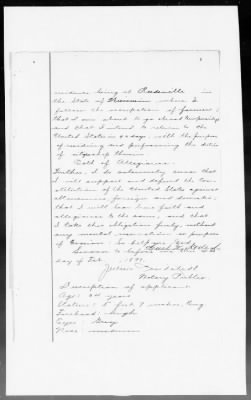 residence being at in
the State of where I
follow the occupation of farmer;
that I am about to go abroad temporarily
and that I intend to return to the
United States in days, with the purpose
of residing and performing the duties
of citizenship therein.
Oath of Allegiance.
Further, I do solemnly swear that
I will support and defend the Con-
stitution of the United States against
all enemies, foreign and domestic;
that I will bear true faith and
allegiance to the same; and that
I take this obligation freely, without
any mental reservation or purpose
of Evasion: So help me God
Sworn to before me this
day of Feb. 1899.
Notary Public
Description of applicant.
Age: years
Stature: 5 feet 7 inches, Eng.
Forehead: high
Eyes: Grey
Nose: medium